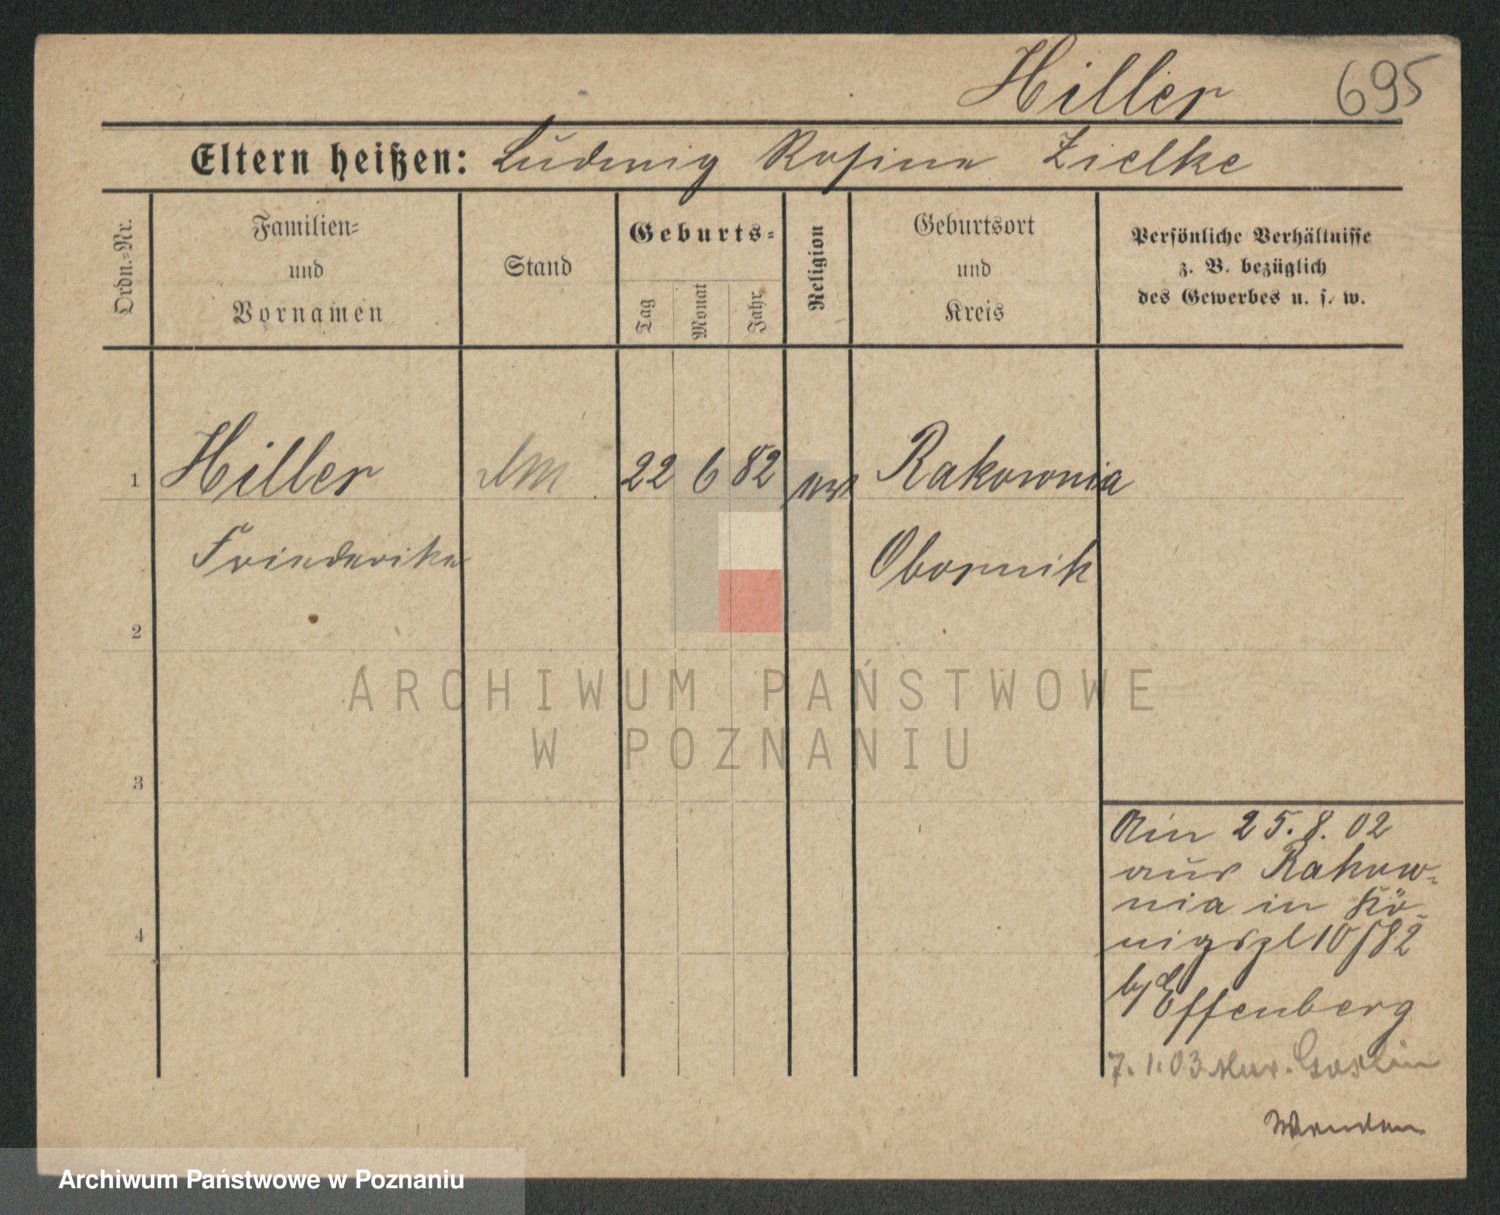 Hiller 695
Eltern heißen: Ludwig Rosina Zielke
Ordn.-Nr.
Familien-
und
Vornamen
Stand
Geburts-
Tag
Monat
Jahr
Religion
Geburtsort
und
Kreis
Persönliche Verhältnisse
z. B. bezüglich
des Gewerbes u. s. w.
1 Hiller 22 6 82 Rakownia
Friederike Obornik
2
3
4
25. 8. 02
aus Rakow-
nia in Kö-
nigspl 10/82
b/ Effenberg
7. 1. 03 Mur. Goslin
ARCHIWUM PAŃSTWOWE
W POZNANIU
Archiwum Państwowe w Poznaniu